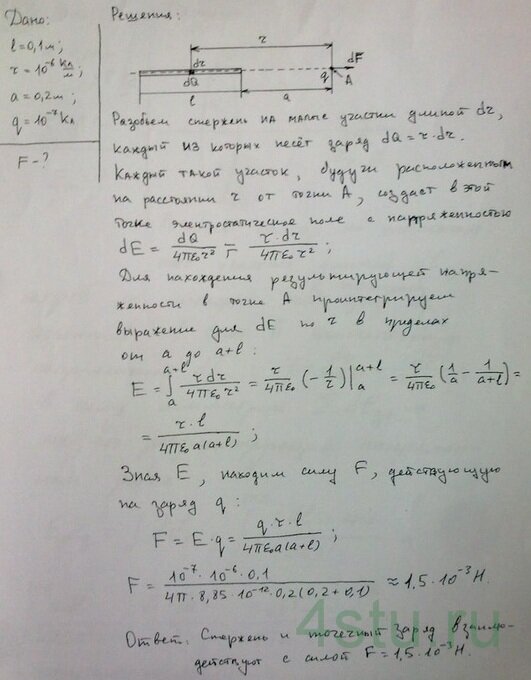 Дано:
l = 0,1 м;
τ = 10⁻⁶ Кл/м;
a = 0,2 м;
q = 10⁻⁷ Кл
F - ?
Решения:
r
dr
dF
dQ
q
A
l
a
Разобьем стержень на малые участки длиной dr,
каждый из которых несёт заряд dQ = τ·dr.
Каждый такой участок, будучи расположенным
на расстоянии r от точки A, создаст в этой
точке электростатическое поле с напряженностью
dE = dQ/4πε₀r² = τ·dr/4πε₀r² ;
Для нахождения результирующей напря-
женности в точке A проинтегрируем
выражение для dE по r в пределах
от a до a+l :
E = ∫ₐᵃ⁺ˡ τdr/4πε₀r² = τ/4πε₀ (-1/r)|ₐᵃ⁺ˡ = τ/4πε₀ (1/a - 1/(a+l)) =
= τ·l/4πε₀a(a+l) ;
Зная E, находим силу F, действующую
на заряд q :
F = E·q = q·τ·l/4πε₀a(a+l) ;
F = 10⁻⁷ · 10⁻⁶ · 0,1/4π · 8,85 · 10⁻¹² · 0,2 (0,2 + 0,1) ≈ 1,5 · 10⁻³ Н.
4stu.ru
Ответ: Стержень и точечный заряд взаимо-
действуют с силой F = 1,5 · 10⁻³ Н.